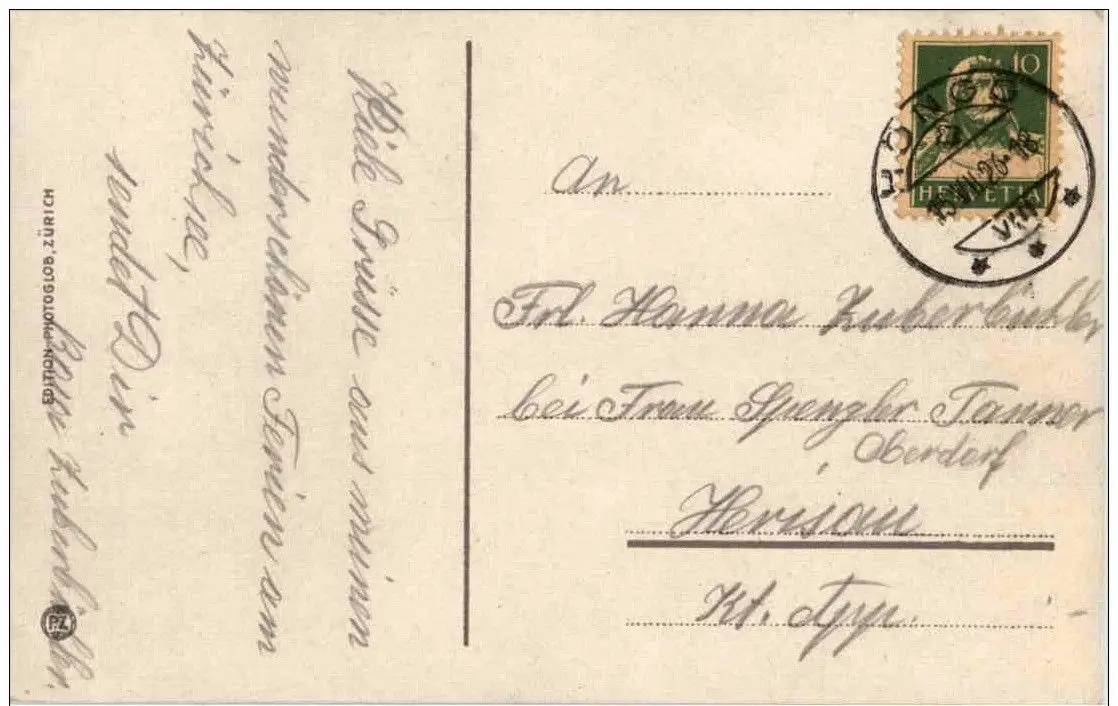 Viele Grüsse aus meinen
wunderschönen Ferien am
Zürichsee,
sendet Dir
Rosa Zuberbühler.
EDITION PHOTOGLOB, ZÜRICH
PZ
10
HELVETIA
HÖNGG
15.VIII.26-18
An
Frl. Hanna Zuberbühler
bei Frau Spengler Tanner
Oberdorf
Herisau
Kt. App.